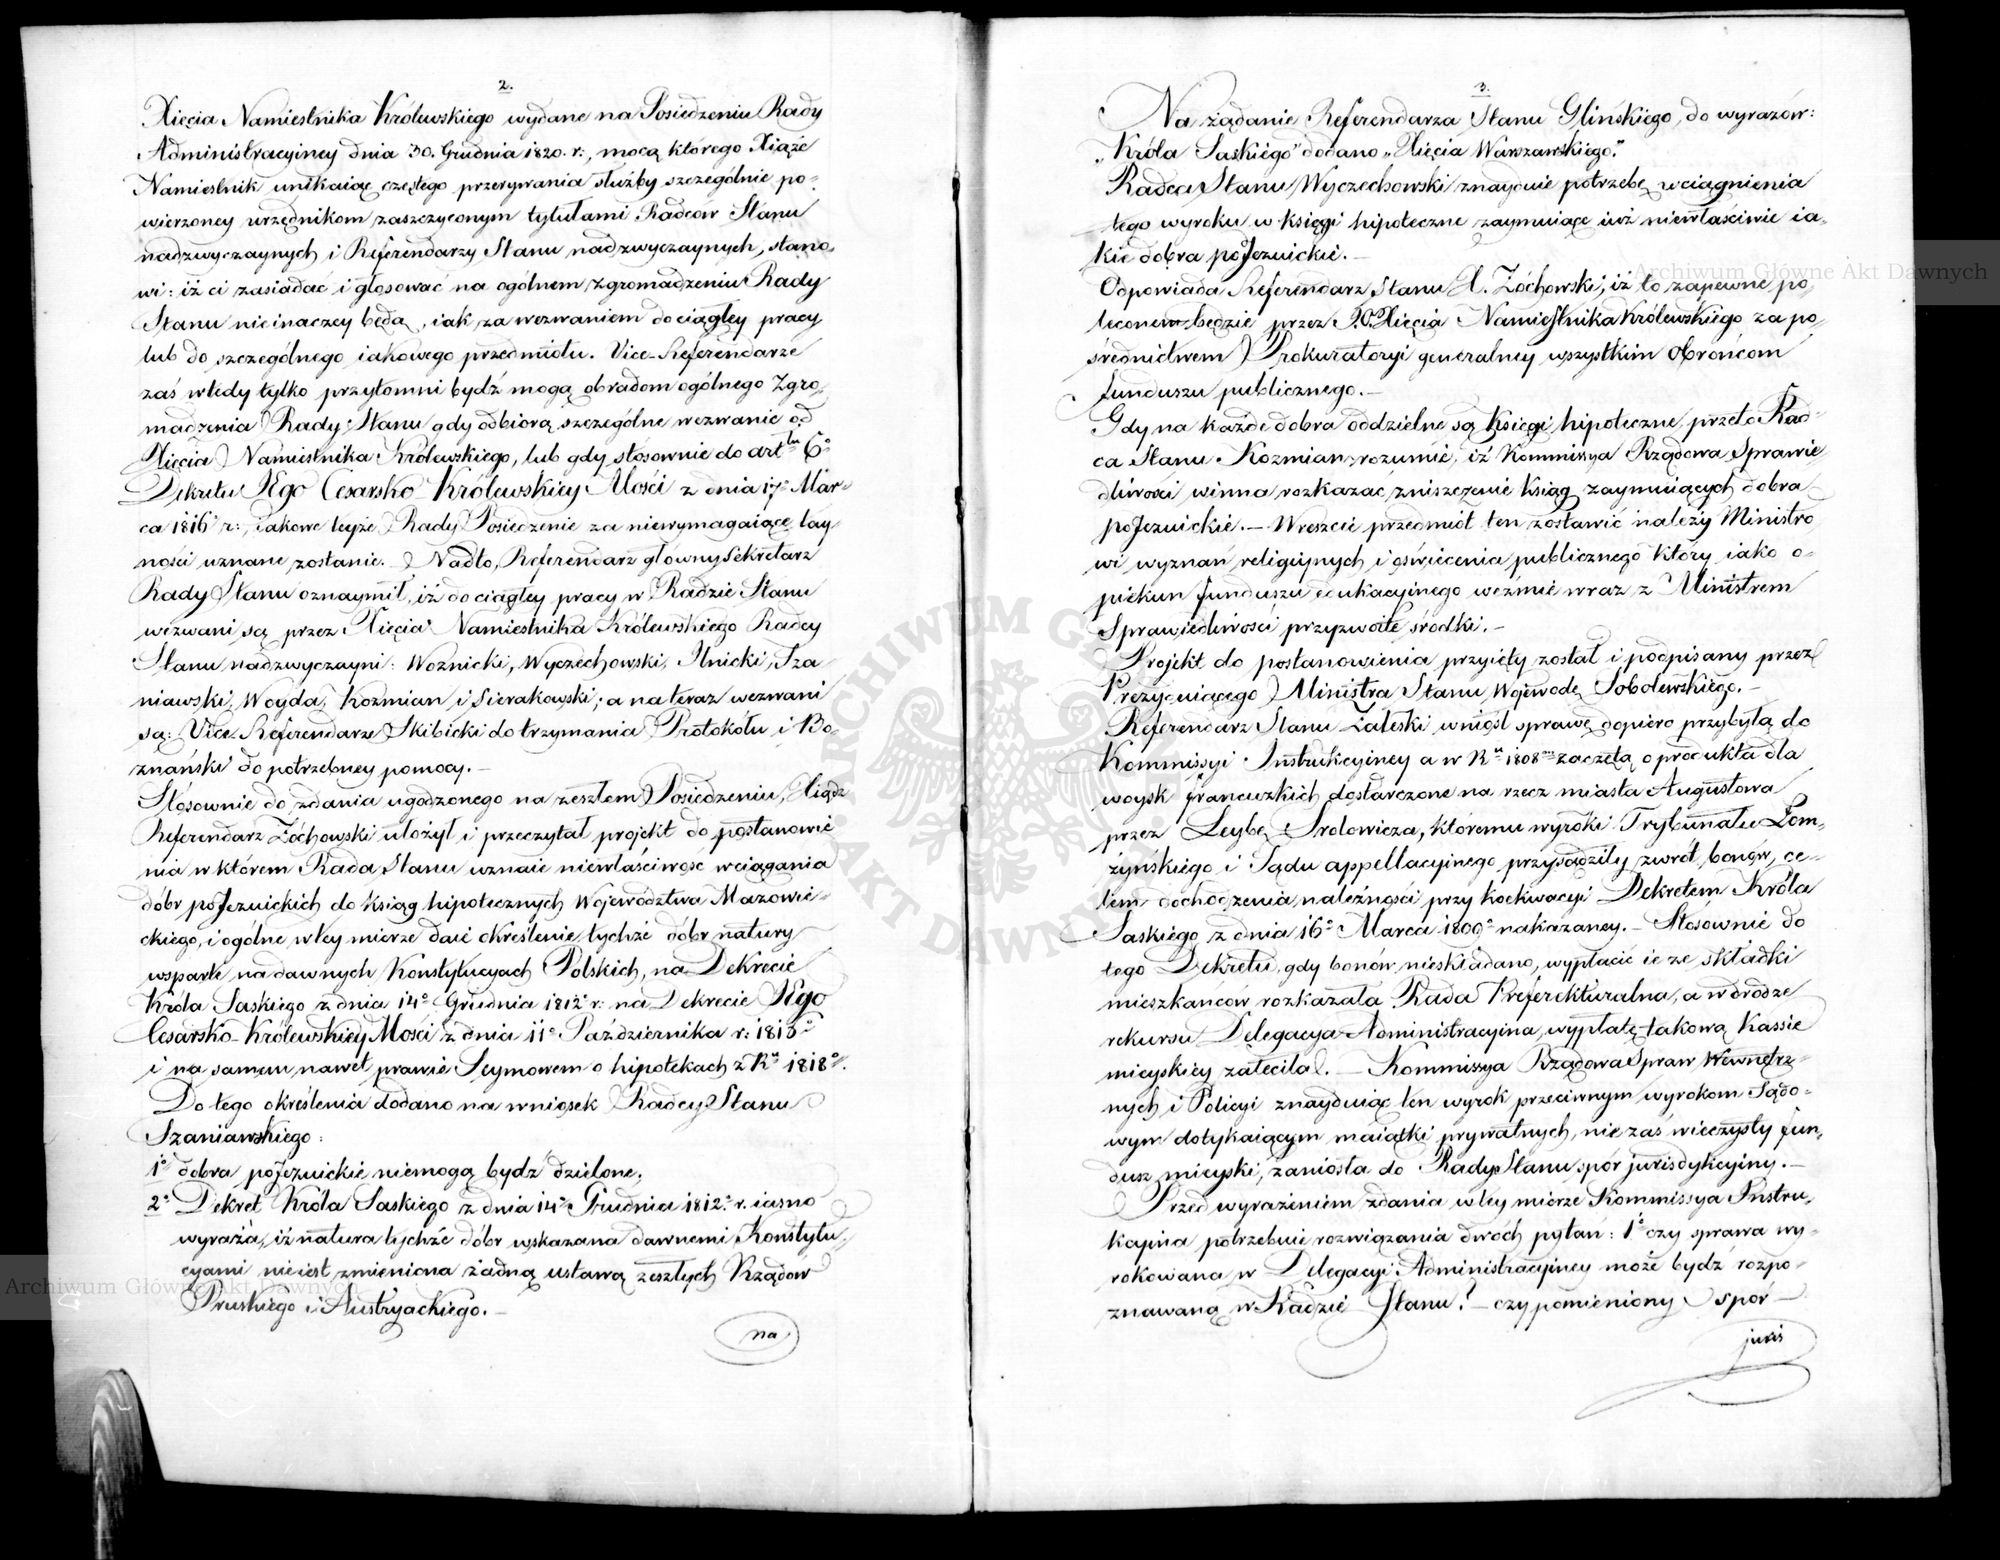 2.
Xięcia Namiestnika Królewskiego wydane na Posiedzeniu Rady
Administracyiney dnia 30. Grudnia 1820. r:, mocą którego Xiąże
Namiestnik unikaiąc częstego przerywania służby szczególnie po-
wierzoney urzędnikom zaszczyconym tytułami Radców Stanu
nadzwyczaynych i Referendarzy Stanu nadzwyczaynych, stano-
wi: iż ci zasiadać i głosować na ogólnem zgromadzeniu Rady
Stanu nieinaczey będą, iak za wezwaniem do ciągłey pracy
lub do szczególnego iakowego przedmiotu. Vice-Referendarze
zaś wtedy tylko przytomni bydź mogą obradom ogólnego Zgro-
madzenia Rady Stanu gdy odbiorą szczególne wezwanie od
Xięcia Namiestnika Królewskiego, lub gdy stósownie do art:łu 6°
Dekretu JEgo Cesarsko-Królewskiey Mości z dnia 17° Mar-
ca 1816 r:, iakowe teyże Rady Posiedzenie za niewymagaiące tay-
ności uznane zostanie. Nadto, Referendarz główny Sekretarz
Rady Stanu oznaymił, iż do ciągłey pracy w Radzie Stanu
wezwani są przez Xięcia Namiestnika Królewskiego Radcy
Stanu nadzwyczayni: Woznicki, Wyczechowski, Ilnicki, Sza
niawski, Woyda, Kozmian i Sierakowski; a na teraz wezwani
są: Vice-Referendarze Skibicki do trzymania Protokółu i Bo-
znański do potrzebney pomocy.-
Stósownie do zdania ugodzonego na zeszłem Posiedzeniu, Xiądz
Referendarz Zóchowski ułożył i przeczytał projekt do postanowie
nia w którem Rada Stanu uznaie niewłaściwość wciągania
dóbr poJezuickich do ksiąg hipotecznych Województwa Mazowie-
ckiego, i ogólne w tey mierze daie określenie tychże dóbr natury
wsparte na dawnych Konstytucyach Polskich, na Dekrecie
Króla Saskiego z dnia 14° Grudnia 1812 r: na Dekrecie JEgo
Cesarsko-Królewskiey Mości z dnia 11° Października r: 1815°
i na samem nawet prawie Seymowem o hipotekach z Ru 1818°.
Do tego określenia dodano na wniosek Radcy Stanu
Szaniawskiego:
1° dobra poJezuickie niemogą bydź dzielone,
2° Dekret Króla Saskiego z dnia 14° Grudnia 1812. r. iasno
wyraża, iż natura tychże dóbr wskazana dawnemi Konstytu-
cyami nieiest zmieniona żadną ustawą zeszłych Rządów
Pruskiego i Austryackiego.-
na
3.
Na żądanie Referendarza Stanu Glińskiego, do wyrazów:
„Króla Saskiego” dodano „Xięcia Warszawskiego.”
Radca Stanu Wyczechowski znayduie potrzebę wciągnienia
tego wyroku w księgi hipoteczne zaymuiące iuż niewłaściwie ia-
kie dobra poJezuickie.-
Odpowiada Referendarz Stanu X. Zóchowski, iż to zapewne po
leconem będzie przez J.O. Xięcia Namiestnika Królewskiego za po-
średnictwem Prokuratoryi generalney wszystkim Obrońcom
funduszu publicznego.-
Gdy na każde dobra oddzielne są księgi hipoteczne, przeto Rad-
ca Stanu Kozmian rozumie, iż Kommissya Rządowa Sprawie
dliwości winna rozkazać zniszczenie ksiąg zaymuiących dobra
poJezuickie.- Wreszcie przedmiot ten zostawić należy Ministro
wi wyznań religiynych i oświecenia publicznego który iako o-
piekun funduszu edukacyinego weźmie wraz z Ministrem
Sprawiedliwości przyzwoite środki.-
Projekt do postanowienia przyięty został i podpisany przez
Prezyduiącego Ministra Stanu Wojewodę Sobolewskiego.-
Referendarz Stanu Zaleski wniósł sprawę dopiero przybyłą do
Kommissyi Instrukcyiney a w Ru 1808 zaczętą o produkta dla
woysk francuzkich dostarczone na rzecz miasta Augustowa
przez Leybę Srolowicza, któremu wyroki Trybunału Łom-
żyńskiego i Sądu appellacyinego przysądziły zwrot bonów, ce-
lem dochodzenia należności przy koekwacyi Dekretem Króla
Saskiego z dnia 16° Marca 1809° nakazaney.- Stósownie do
tego Dekretu, gdy bonów nieskładano, wypłacić ie ze składki
mieszkańców rozkazała Rada Prefekturalna, a w drodze
rekursu Delegacya Administracyina wypłatę takową Kassie
mieyskiey zaleciła.- Kommissya Rządowa Spraw Wewnętrz-
nych i Policyi znayduiąc ten wyrok przeciwnym wyrokom Sądo-
wym dotykaiącym maiątki prywatnych, nie zaś wieczysty fun-
dusz mieyski, zaniosła do Rady Stanu spór jurisdykcyiny.-
Przed wyrażeniem zdania w tey mierze Kommissya Instru-
kcyina potrzebuie rozwiązania dwóch pytań: 1° czy sprawa wy-
rokowana w Delegacyi Administracyiney może bydź rozpo-
znawaną w Radzie Stanu?- czy pomieniony spór-
juris
Archiwum Główne Akt Dawnych
Archiwum Główne Akt Dawnych
ARCHIWUM GŁÓWNE AKT DAWNYCH